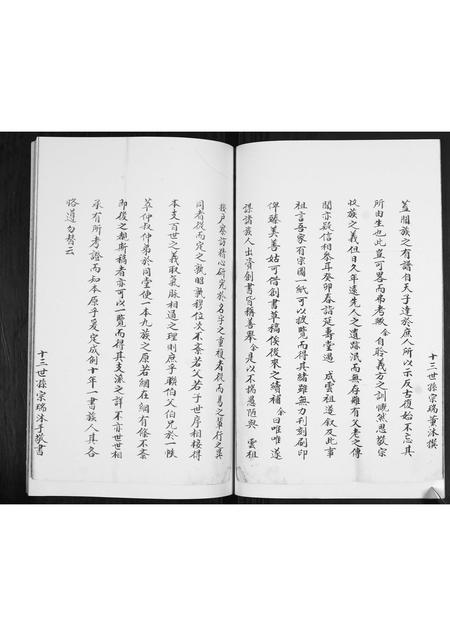 十三世孫宗瑞薰沐撰
蓋聞族之有譜自天子達於庶人所以示反古復始不忘其
所由生也此豈可畧而弗考歟余自聆義方之訓慨然思敬宗
收族之義但日久年遠先人之遺跡泯而無存雖有父老之傳
聞亦疑信相參耳癸卯春詣延壽堂遇 成雲祖道叙及此事
祖言吾家有宗圖一紙可以披覽而得其緒雖無力刊刻刷印
俾臻美善姑可借創書草稿俟後來之續補余曰唯唯遂
謀諸族人出資創書皆稱善舉余是以不揣愚陋與 雲祖
挨戶察訪精心研究於名字之重複者從而易之舉行之異
同者從而定之孰昭孰穆位次不紊若父若子世序相接得
本支百世之義取氣脉相通之理則庶乎聯伯父伯兄於一陜
萃仲叔仲弟於同堂使一本九族之原若綱在綱有條不紊
即後之觀斯稿者亦可以一覽而得其支派之詳不亦世世相
承有所考證而知本原乎爰定成創十年一書族人其各
恪遵勿替云
十三世孫宗瑞沐手敬書